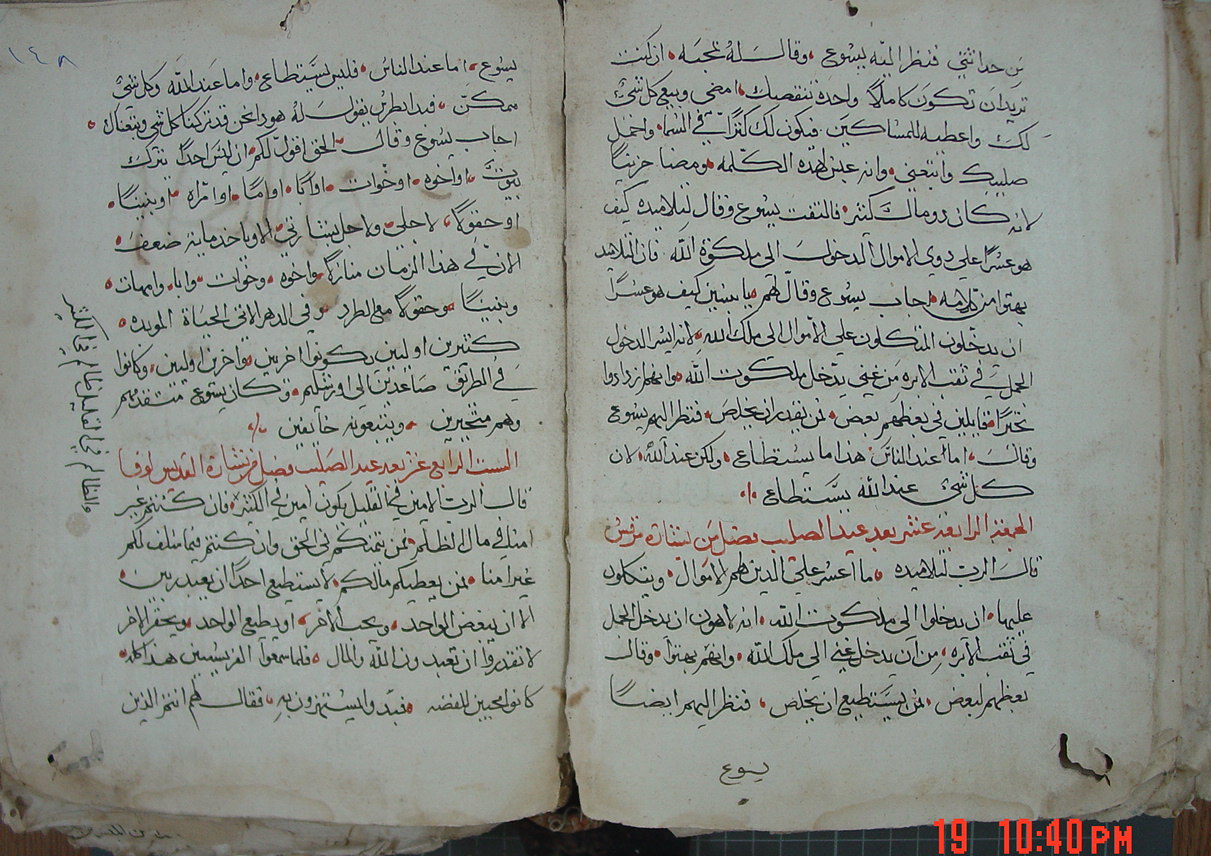 من حداثتي فنظر اليه يسوع وقال له بمحبه ان كنت
تريد ان تكون كاملاً واحدة تنقصك امضي وبيع كل شي
لك واعطيه للمساكين فيكون لك كنزاً في السما واحمل
صليبك واتبعني وانه عبس لهذه الكلمه ومضا حزيناً
لانه كان ذو مال كثير فالتفت يسوع وقال لتلاميذه كيف
هو عسراً علي ذوي الاموال الدخول الى ملكوة الله فان التلاميذ
بهتوا من كلامه اجاب يسوع وقال لهم يا بنين كيف هو عسراً
ان يدخلون المتكلون علي الاموال الى ملك الله لانه ايسر لدخول
الجمل في ثقب الابره من غني يدخل ملكوت الله وانهم ازدادوا
تحيّراً قايلين لبعظهم بعض لمن يقدر ان يخلص فنظر اليهم يسوع
وقال اما عند الناس هذا ما يستطاع ولكن عند الله لان
كل شي عند الله يستطاع
الجمعة الرابعة عشر بعد عيد الصليب فصل من بشارة مرقس
قال الرب لتلاميذه ما اعسر علي الذين لهم الاموال ويتكلون
عليها ان يدخلوا الى ملكوت الله انه لاهون ان يدخل الجمل
في ثقب الابره من ان يدخل غني الي ملك الله وانهم بهتوا وقال
بعظهم لبعض لمن يستطيع ان يخلص فنظر اليهم ايضاً
يسوع
١٤٨
يسوع اما عند الناس فليس يستطاع واما عند الله وكل شي
ممكن فبدا بطرس يقول له هوذا نحن قد تركنا كل شي وتبعناك
اجاب يسوع وقال الحق اقول لكم ان ليس احداً يترك
بيوت او اخوه او خوات او اباً او اماً او امراه او بنيناً
او حقولاً لاجلي ولاجل بشارتي الا وياخذ ماية ضعف
الان في هذا الزمان منازلاً واخوه وخوات وابا وامهات
وبنيناً وحقولاً مع الطرد وفي الدهر الاتي الحياة الموبده
كثيرين اولين يكونوا اخرين واخرين اولين وكانوا
في الطريق صاعدين الى اورشليم وكان يسوع متقدمهم
وهم متحيرين ويتبعونه خايفين
السبت الرابع عشر بعد عيد الصليب فصل من بشارة القديس لوقا
قال الرب الامين في القليل يكون امين في الكثير فان كنتم غير
امنا في مال الظلم فمن يتمنكم في الحق وان كنتم فيما سلف لكم
غير امنا فمن يعطيكم مالكم لا يستطيع احداً ان يعبد ربين
الا ان يبغض الواحد ويحب الاخر او يطيع الواحد ويحقر الاخر
لا تقدروا ان تعبدون الله والمال فلما سمعوا الفريسيين هذا كله
كانوا محبين للفضه فبدوا يستهزون به فقال لهم انتم الذين
والظالم في القليل ظالم في الكثير
19 10:40 PM